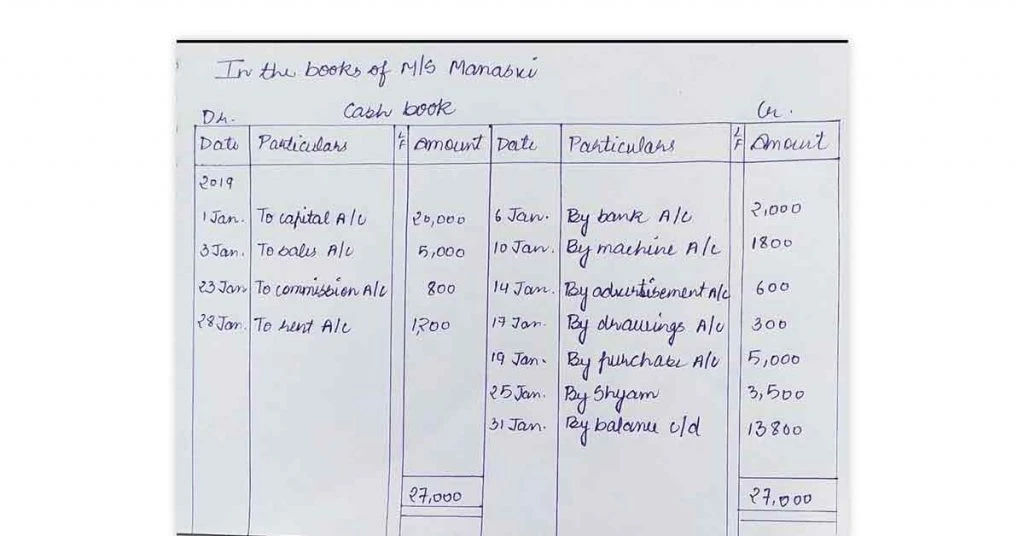 In the books of M/S Manaski
Dr. Cash book Cr.
Date Particulars LF Amount Date Particulars LF Amount
2019
1 Jan. To capital A/c 20,000 6 Jan. By bank A/c 2,000
3 Jan. To sales A/c 5,000 10 Jan. By machine A/c 1800
23 Jan To commission A/c 800 14 Jan. By advertisement A/c 600
28 Jan. To rent A/c 1,200 17 Jan. By drawings A/c 300
19 Jan. By purchase A/c 5,000
25 Jan. By Shyam 3,500
31 Jan. By balance c/d 13800
27,000 27,000